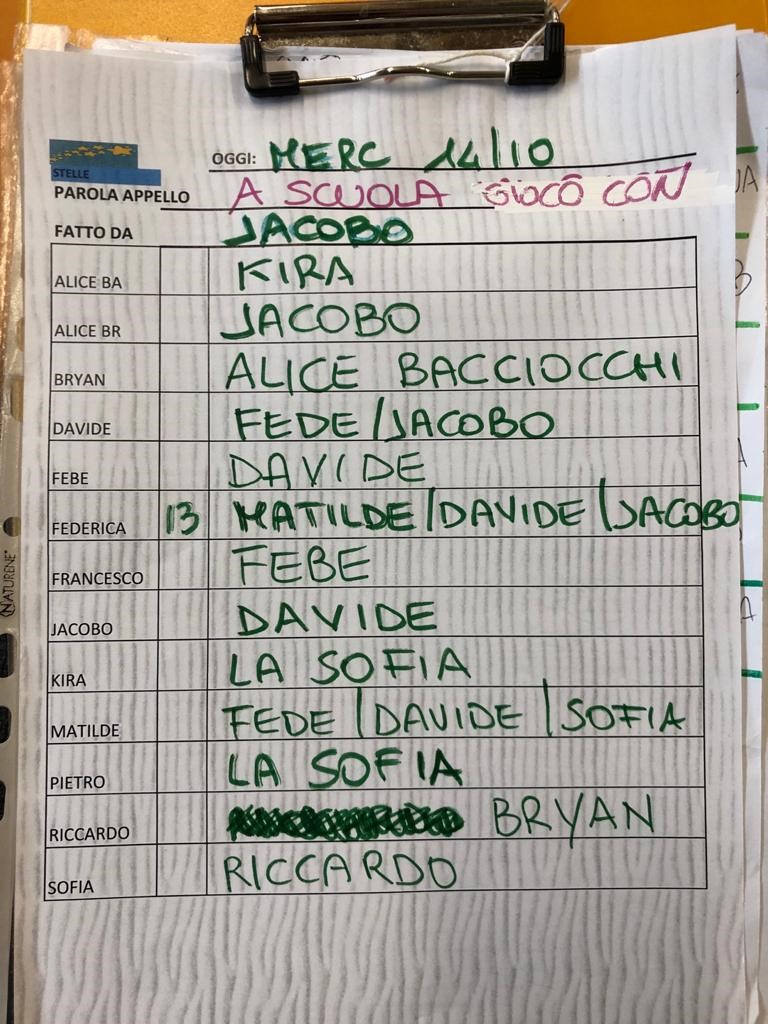 STELLE
OGGI: MERC 14/10
PAROLA APPELLO A SCUOLA GIOCO CON
FATTO DA JACOBO
ALICE BA KIRA
ALICE BR JACOBO
BRYAN ALICE BACCIOCCHI
DAVIDE FEDE/JACOBO
FEBE DAVIDE
FEDERICA 13 MATILDE/DAVIDE/JACOBO
FRANCESCO FEBE
JACOBO DAVIDE
KIRA LA SOFIA
MATILDE FEDE/DAVIDE/SOFIA
PIETRO LA SOFIA
RICCARDO BRYAN
SOFIA RICCARDO
NATURENE